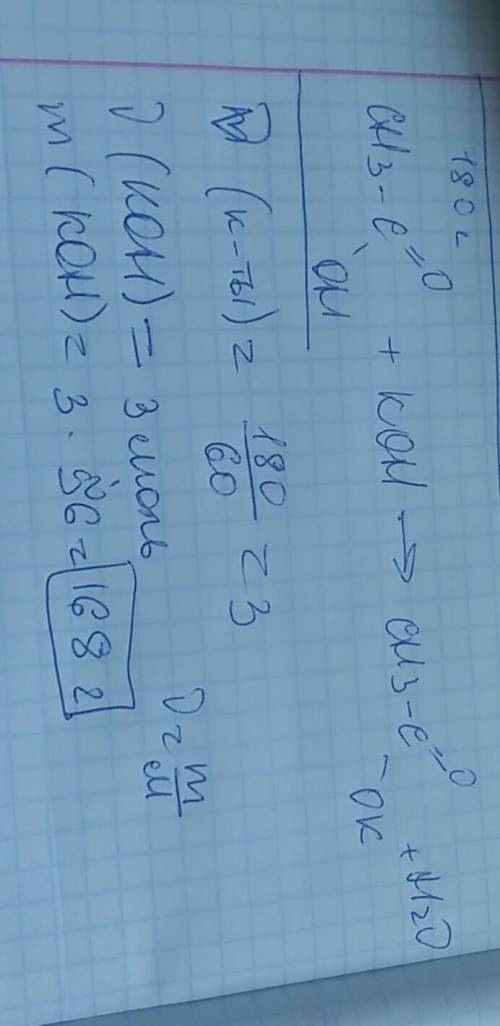 180 г
CH3-C=O OH + KOH → CH3-C=O -OK + H2O
ν (к-ты) = 180/60 = 3
ν (KOH) = 3 моль
ν = m/M
m (KOH) = 3 · 56 = 168 г